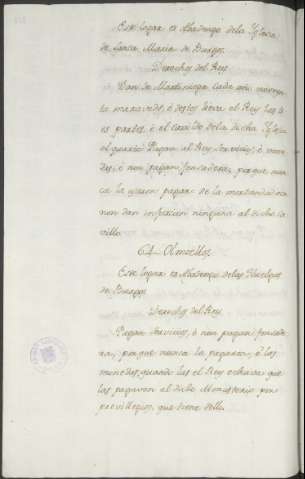 Este logar es Abadengo dela Yglesia
de Santa Maria de Burgos.
Derechos del Rey
Dan de Martiniega cada año
ta maravedis, è destos lieva el Rey las
es partes, è el Cavildo dela dicha Yglesia
el quarto. Pagan al Rey Servicios, è mone
das, è non pagan fonsadera, porque nun
ca la usaron pagar
non dan infurcion ninguna al dicho ca
villo.
64. Olmillos.
Este logar es Abadengo delas Huelgas
de Burgos
Derechos del Rey
Pagan Servicios, è non pagan fonsade
ra, porque nunca la pagaron, è las
monedas, quando las el Rey echava que
las pagaron al dicho Monesterio por
previllegios, que tiene dello.